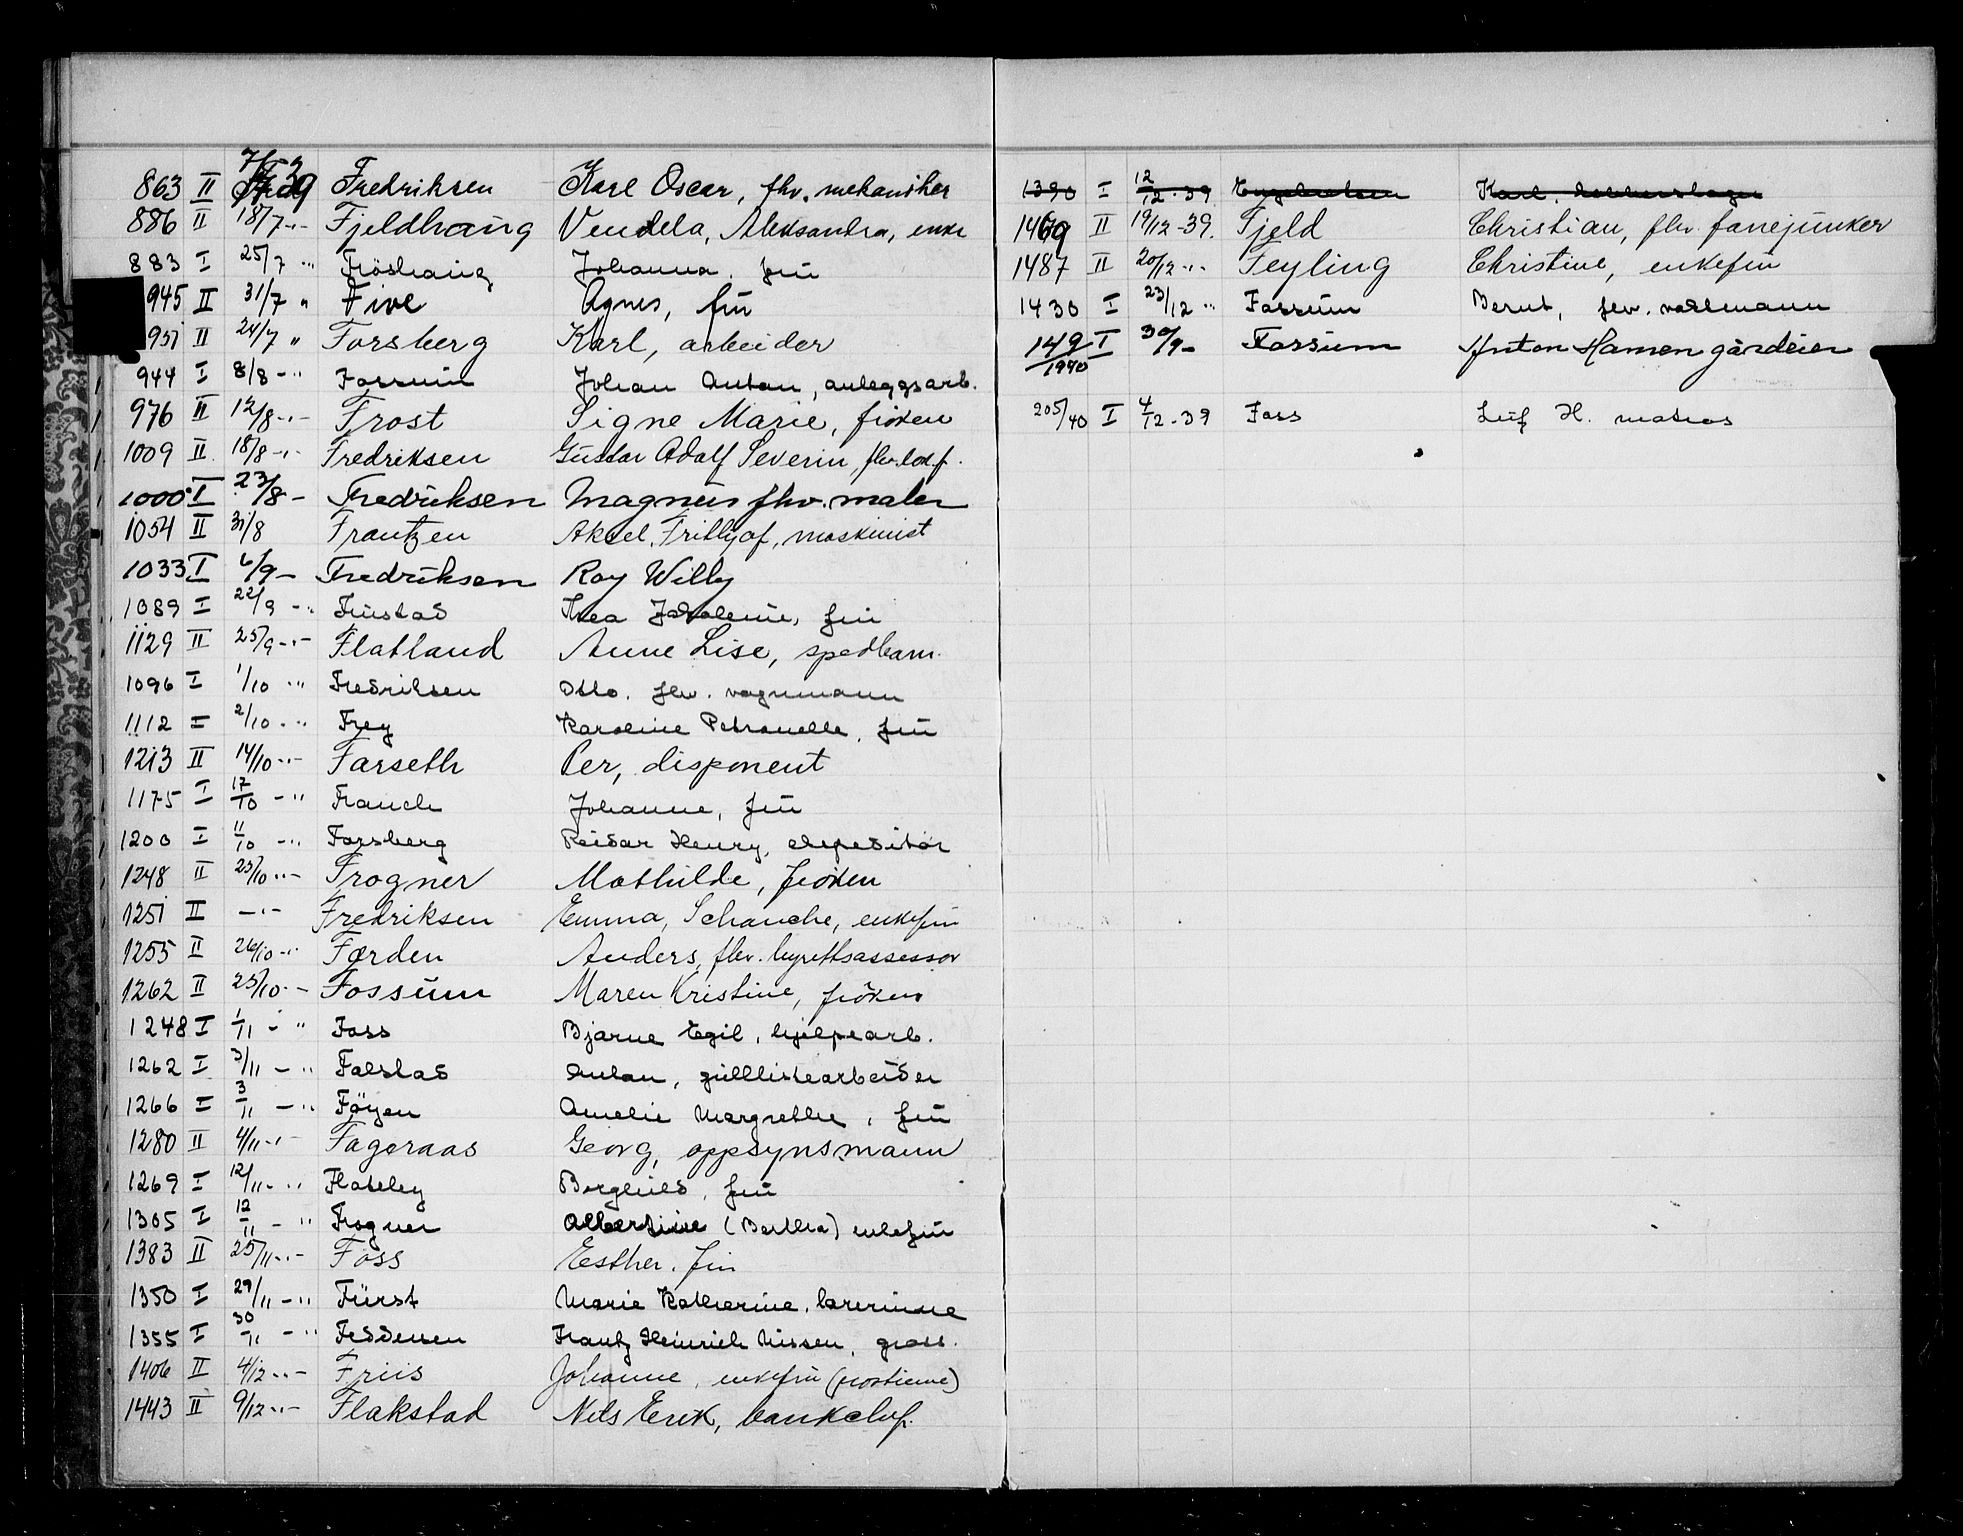 863 II 7/7 39 Fredriksen Karl Oscar, fhv. mekaniker
886 II 18/7 -"- Fjeldhaug Vendela, Aleksandra, enke
883 I 25/7 -"- Fröshaug Johanna, frü
945 II 31/7 " Five Agnes, frü
951 II 24/7 " Forsberg Karl, arbeider
944 I 8/8 -"- Fossum Johan Anton, anleggsarb.
976 II 12/8 -"- Frost Signe Marie, fröken
1009 II 18/8 -"- Fredriksen Gustav Adolf Severin, fhv.
1000 I 23/8 - Fredriksen Magnus fhv. maler
1054 II 31/8 Frantzen Aksel, Frithjof, maskinist
1033 I 6/9 - Fredriksen Roy Willy
1089 I 22/9 -"- Frustad Thea, frü
1129 II 25/9 -"- Flatland Anne Lise, spedbarn.
1096 I 1/10 -"- Fredriksen Otto, fhv. vognmann
1112 I 2/10 -"- Frey Karoline Petronelle, frü
1213 II 14/10 -"- Farseth Per, disponent
1175 I 17/10 -"- Franck Johanne, frü
1200 I 11/10 -"- Forsberg Reidar Henry, ekspeditör
1248 II 23/10 -"- Frogner Mathilde, fröken
1251 II -"- Fredriksen Emma, Schanche, enkefrü
1255 II 26/10 -"- Førden Anders, fhv. byrettsassessor
1262 II 25/10 - Fossum Maren Kristine, fröken
1248 I 1/11 -"- Foss Bjarne Egil, hjelpearb.
1262 I 3/11 -"- Falstad Anton, gulllistearbeider
1266 I 3/11 -"- Föyen Amelie Margrethe, frü
1280 II 4/11 -"- Fageraas Georg, oppsynsmann
1269 I 12/11 -"- Flateley Borghild, frü
1305 I 12/11 -"- Frogner Albertine (Bertha) enkefrü
1383 II 25/11 -"- Foss Esther, frü
1350 I 29/11 -"- Fürst Marie Katherine, lærerinne
1355 I 30/11 -"- Feddersen Frantz Heinrich Nissen, gross.
1406 II 4/12 -"- Friis Johanne, enkefrü (prostinne)
1443 II 9/12 -"- Flakstad Nils Erik, bankchef.
1390 I 12/12-39 Engebretsen Karl,
1469 II 19/12-39. Fjeld Christian, fhv. fanejunker
1487 II 20/12 -"- Feyling Christine, enkefrü
1430 I 23/12 " Fossum Bernt, fhv.
149/1940 I 30/9 - Fossum Anton Hansen gårdeier
205/40 I 4/12-39 Foss Leif H. matros